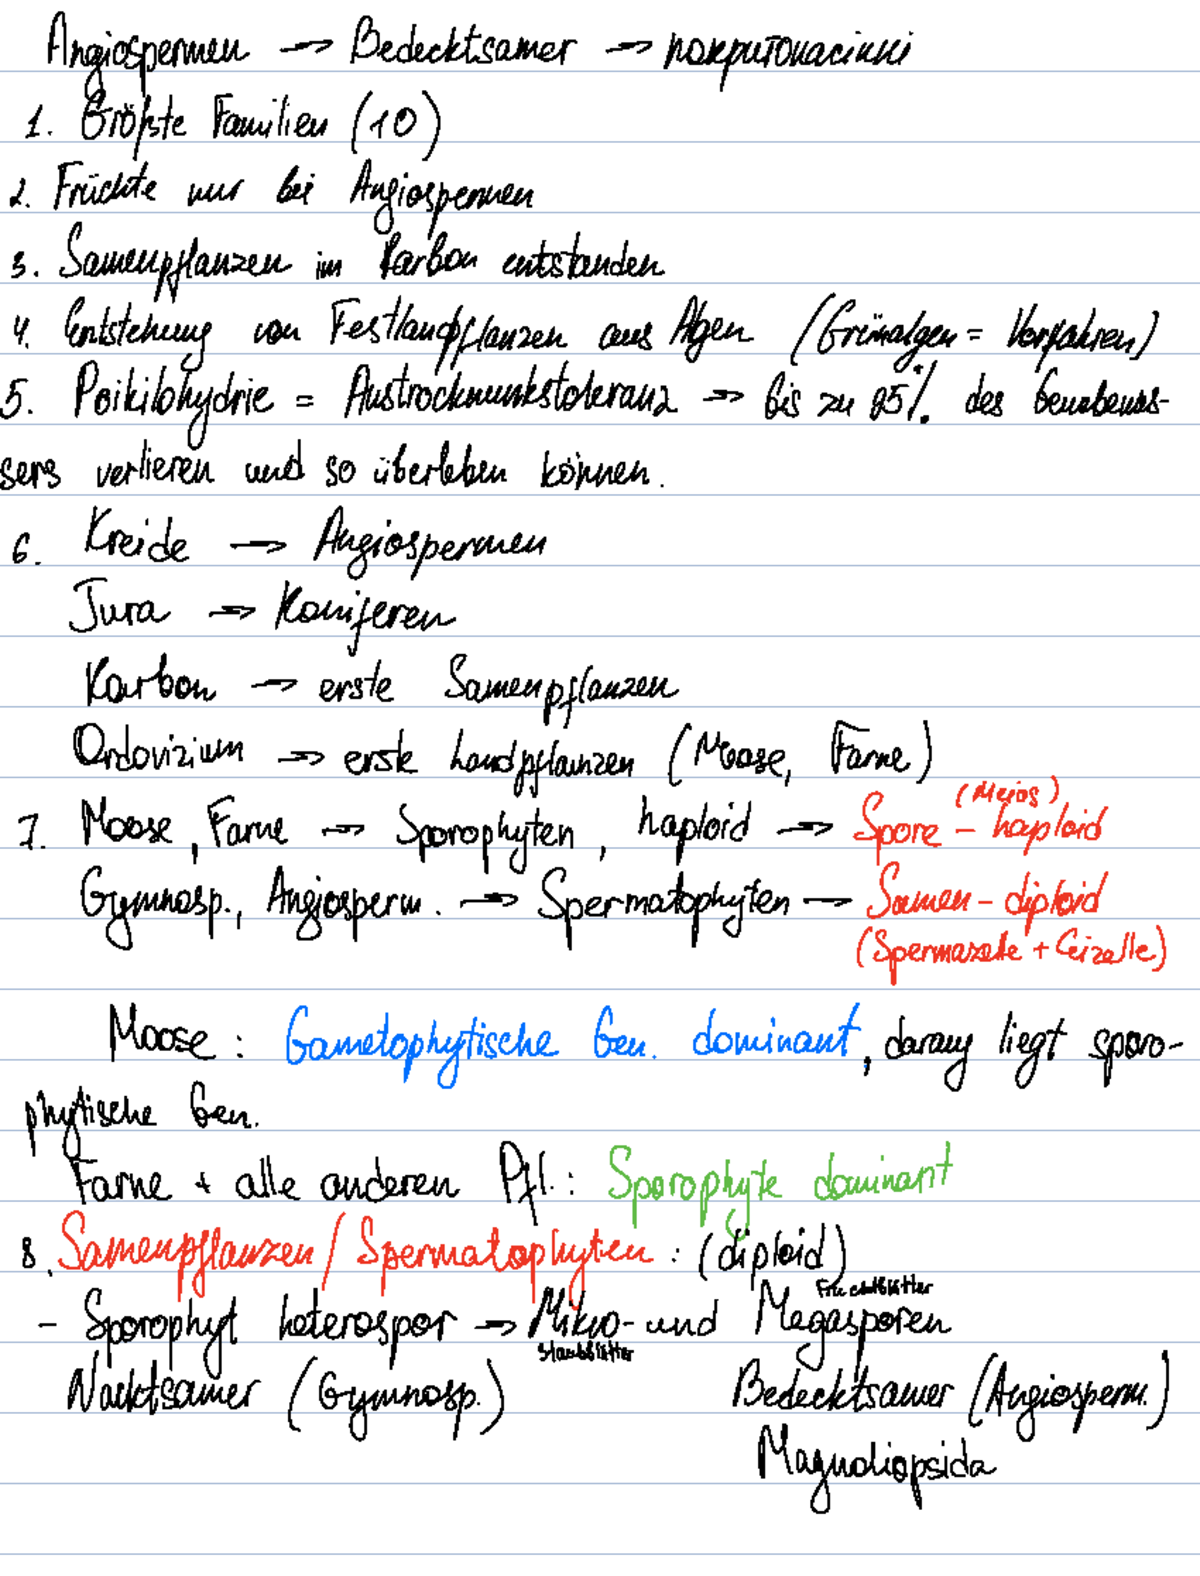 Angiospermen → Bedecktsamer → покритонасінні
1. Größte Familien (10)
2. Früchte nur bei Angiospermen
3. Samenpflanzen im Karbon entstanden
4. Entstehung von Festlandpflanzen aus Algen (Grünalgen = Vorfahren)
5. Poikilohydrie = Austrocknunkstoleranz → bis zu 95% des
sers verlieren und so überleben können.
6. Kreide → Angiospermen
Jura → Koniferen
Karbon → erste Samenpflanzen
Ordovizium → erste Landpflanzen (Moose, Farne)
(Meios)
7. Moose, Farne → Sporophyten, haploid → Spore - haploid
Gymnosp., Angiosperm. → Spermatophyten → Samen - diploid
(Spermazelle + Eizelle)
Moose: Gametophytische Gen. dominant, darauf liegt sporo-
phytische Gen.
Farne + alle anderen Pfl.: Sporophyte dominant
8. Samenpflanzen / Spermatophyten: (diploid)
Fruchtblätter
- Sporophyt heterospor → Mikro- und Megasporen
Staubblätter
Nacktsamer (Gymnosp.) Bedecktsamer (Angiosperm.)
Magnoliopsida